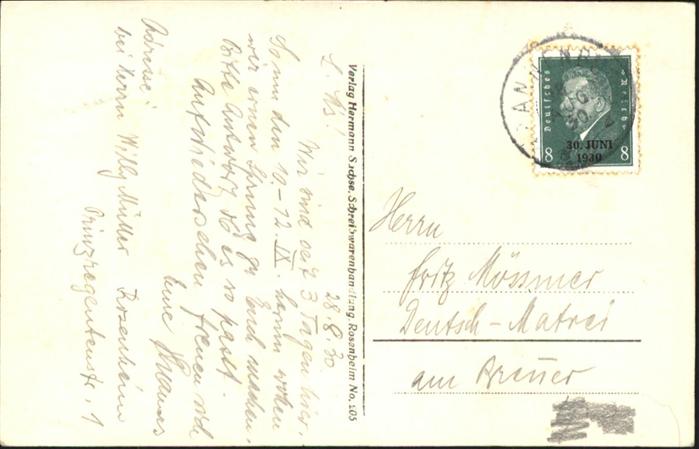 28.8.30
L. Br.!
Wir sind seit 3 Tagen hier.
So um den 10.-12. IX. herum wollen
wir einen Sprung zu Euch machen.
Bitte Antwort ob es so passt.
Auf Wiedersehen freuen sich
Adresse:
bei Herrn Willy Müller Rosenheim
Prinzregentenstr. 1
Verlag Hermann Sachse, Schreibwarenhandlung, Rosenheim No. 105
Deutsches Reich
8 8
30. JUNI
1930
Herrn
Fritz Mössmer
Deutsch-Matrei
am Brenner